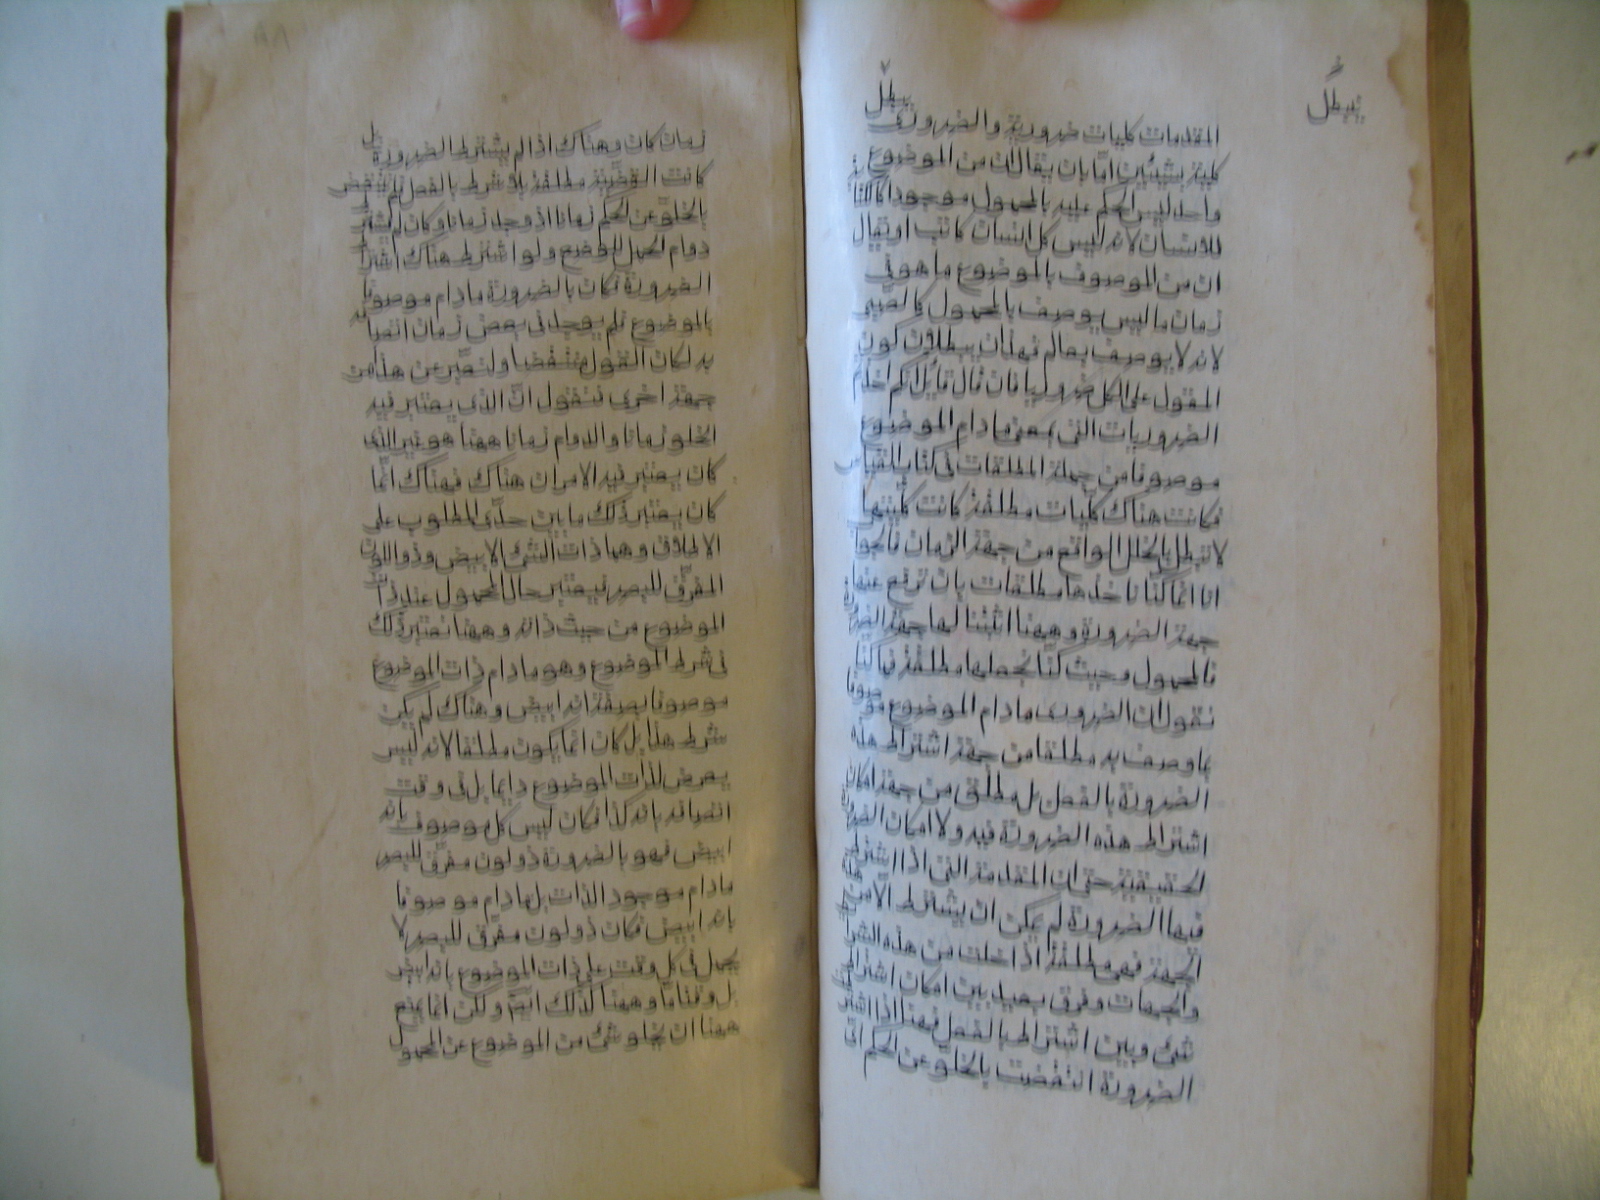 يبطل
يبطل
المقدمات كليات ضرورية والضرورى
كليته بشيئين اما بان يقال ان من الموضوع
واحد ليس الحكم عليه بالمحمول موجودا كالكتابة
للانسان لانه ليس كل انسان كاتب او يقال
ان من الموصوف بالموضوع ما هو فى
زمان ما ليس يوصف بالمحمول كالصبى
لانه لا يوصف بعالم فهذان يبطلان كون
المقول على الكل ضروريا فان قال قائل انكم اخذتم
الضروريات التى بمعنى ما دام الموضوع
موصوفا من جملة المطلقات فى كتاب القياس
فكانت هناك كليات مطلقة كانت كليتها
لا تبطل بالخلل الواقع من جهة الزمان فالجواب
انا انما كنا ناخذها مطلقات بان نرفع عنها
جهة الضرورة وههنا اثبتنا لها جهة الضرورة
فالمحمول وحيث كنا نجعلها مطلقة فما كنا
نقول ان الضرورى ما دام الموضوع موصوفا
بما وصف به مطلقا من جهة اشتراط هذه
الضرورة بالفعل بل مطلق من جهة امكان
اشتراط هذه الضرورة فيه ولا امكان الضرورة
الحقيقية حتى ان المقدمة التى اذا اشترط
فيها الضرورة لم يمكن ان يشترط الا من هذه
الجهة فهى مطلقة اذا خلت من هذه الشرائط
والجهات وفرق بعيد بين امكان اشتراط
شىء وبين اشتراطه بالفعل فههنا اذا اشترط
الضرورة انتقضت بالخلو عن الحكم اى
زمان كان وهناك اذا لم يشترط الضرورة بل
كانت القضية مطلقة بلا شرط بالفعل لم تنتقض
بالخلو عن الحكم زمانا اذ وجد زمانا وكان لم يشترط
دوام الحمل للوضع ولو اشترط هناك اشتراط
الضرورة فكان بالضرورة ما دام موصوفا
بالموضوع فلم يوجد فى بعض زمان اتصافه
به لكان القول منتقضا ولنعبر عن هذا من
جهة اخرى فنقول ان الذى يعتبر فيه
الخلو زمانا والدوام زمانا ههنا هو غير الذى
كان يعتبر فيه الامران هناك فهناك انما
كان يعتبر ذلك ما بين حدى المطلوب على
الاطلاق وهما ذات الشىء الابيض وذو اللون
المفرق للبصر فيعتبر حال المحمول عند ذات
الموضوع من حيث ذاته وههنا نعتبر ذلك
فى شرط الموضوع وهو ما دام ذات الموضوع
موصوفا بصفة انه ابيض وهناك لم يكن
شرط هذا بل كان انما يكون مطلقا لانه ليس
يعرض لذات الموضوع دايما بل فى وقت
اتصافه بانه كذا فكان ليس كل موصوف بانه
ابيض فهو بالضرورة ذو لون مفرق للبصر
ما دام موجود الذات بل ما دام موصوفا
بانه ابيض فكان ذو لون مفرق للبصر لا
يحمل فى كل وقت على ذات الموضوع بانه ابيض
بل وقتا ما وههنا كذلك ايضا ولكن انما يمنع
ههنا ان يخلو شىء من الموضوع عن المحمول